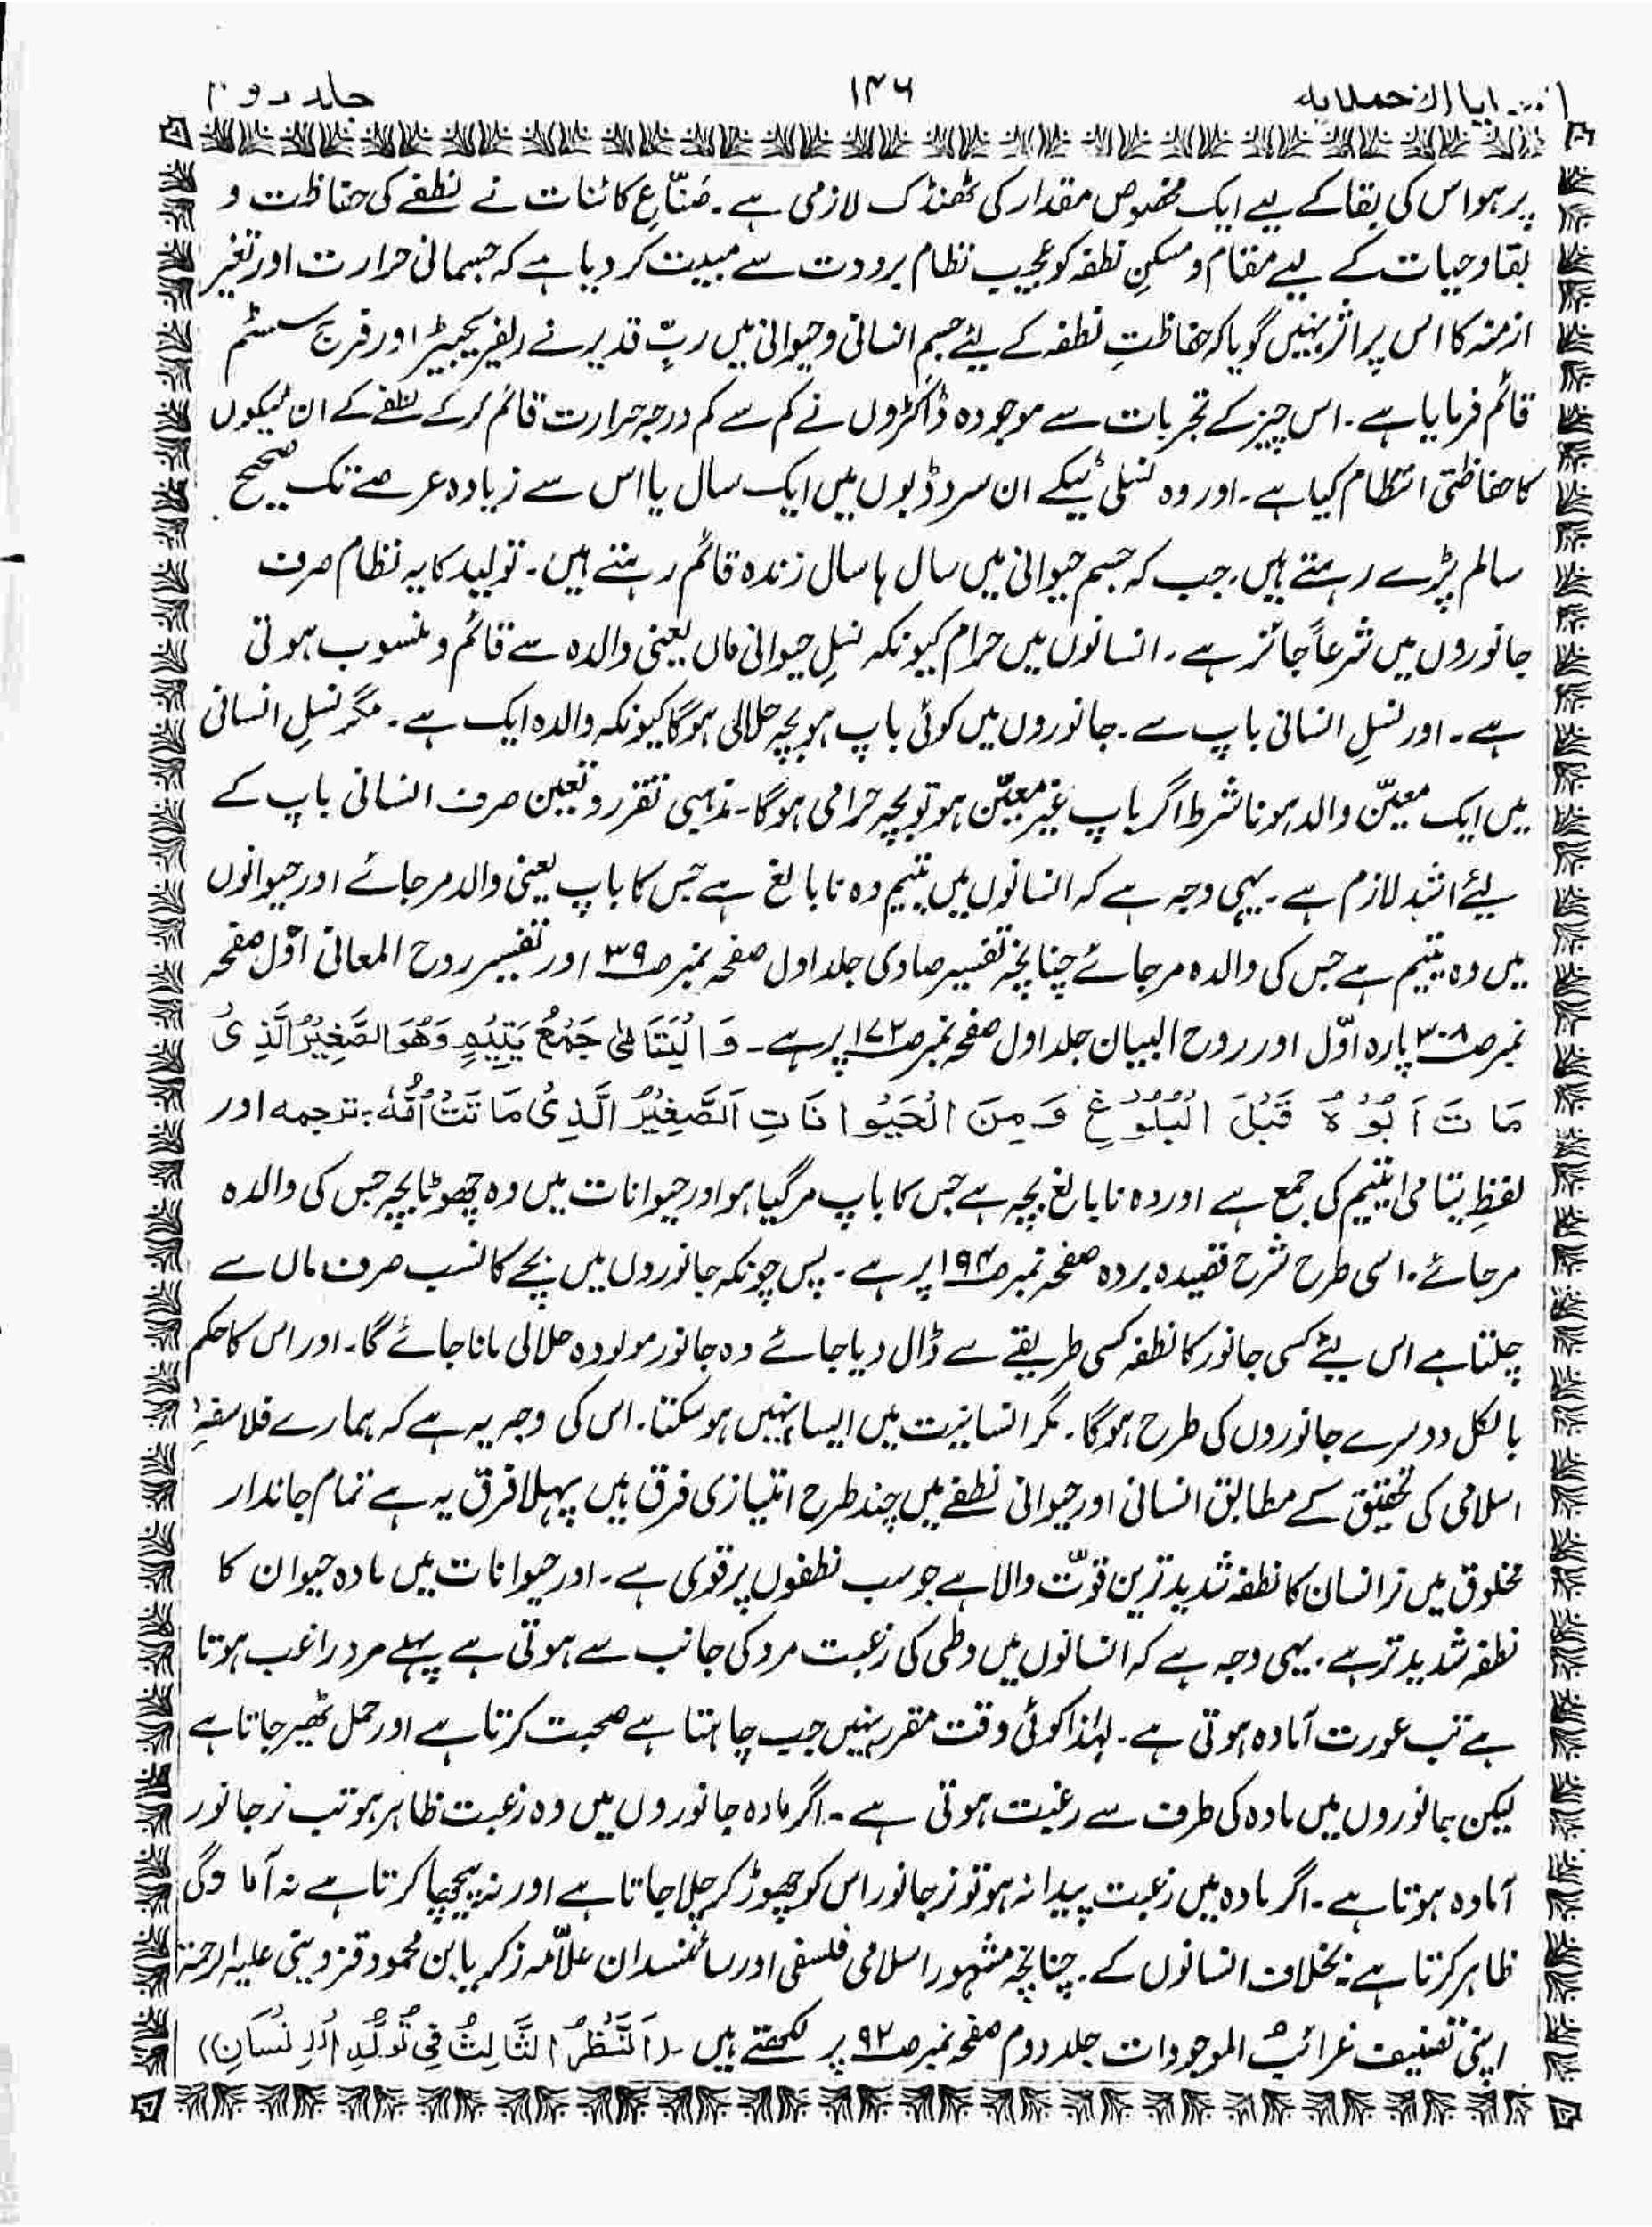 جلد دوم
۱۴۶
پر ہو اس کی بقا کے لیے ایک مخصوص مقدار کی ٹھنڈک لازمی ہے۔ صَنّاعِ کائنات نے نطفے کی حفاظت و
بقا و حیات کے لیے مقام و مسکنِ نطفہ کو عجیب نظام برودت سے مبیت کر دیا ہے کہ جسمانی حرارت اور تغیر
ازمنہ کا اس پر اثر نہیں گویا کہ حفاظتِ نطفہ کے لیئے جسم انسانی و حیوانی میں ربِّ قدیر نے ریفریجیٹر اور فریج سسٹم
قائم فرمایا ہے۔ اس چیز کے تجربات سے موجودہ ڈاکٹروں نے کم سے کم درجہ حرارت قائم کر کے نطفے کے ان ٹیکوں
کا حفاظتی انتظام کیا ہے۔ اور وہ نسلی ٹیکے ان سرد ڈبوں میں ایک سال یا اس سے زیادہ عرصے تک صحیح
سالم پڑے رہتے ہیں۔ جب کہ جسم حیوانی میں سال ہا سال زندہ قائم رہتے ہیں۔ تولید کا یہ نظام صرف
جانوروں میں شرعاً جائز ہے۔ انسانوں میں حرام کیونکہ نسلِ حیوانی ماں یعنی والدہ سے قائم و منسوب ہوتی
ہے۔ اور نسلِ انسانی باپ سے۔ جانوروں میں کوئی باپ ہو بچہ حلالی ہوگا کیونکہ والدہ ایک ہے۔ مگر نسلِ انسانی
میں ایک معیّن والد ہونا شرط اگر باپ غیر معیّن ہو تو بچہ حرامی ہوگا۔ مذہبی تقرر و تعین صرف انسانی باپ کے
لیئے اشد لازم ہے۔ یہی وجہ ہے کہ انسانوں میں یتیم وہ نابالغ ہے جس کا باپ یعنی والد مر جائے اور حیوانوں
میں وہ یتیم ہے جس کی والدہ مر جائے چنانچہ تفسیر صاوی جلد اول صفحہ نمبر ص۳۹ اور تفسیر روح المعانی اوّل صفحہ
نمبر ص۳۰۸ پارہ اوّل اور روح البیان جلد اول صفحہ نمبر ص۱۷۲ پر ہے۔ وَالْيَتَامٰى جَمْعُ يَتِيْمٍ وَهُوَ الصَّغِيْرُ الَّذِىْ
مَاتَ اَبُوْهُ قَبْلَ الْبُلُوْغِ وَمِنَ الْحَيْوَانَاتِ اَلصَّغِيْرُ الَّذِىْ مَاتَتْ اُمُّهٗ؛ ترجمہ اور
لفظِ یتامیٰ یتیم کی جمع ہے اور وہ نابالغ بچہ ہے جس کا باپ مر گیا ہو اور حیوانات میں وہ چھوٹا بچہ جس کی والدہ
مر جائے۔ اسی طرح شرح قصیدہ بردہ صفحہ نمبر ص۱۹۴ پر ہے۔ پس چونکہ جانوروں میں بچے کا نسب صرف ماں سے
چلتا ہے اس لیئے کسی جانور کا نطفہ کسی طریقے سے ڈال دیا جائے وہ جانور مولودہ حلالی مانا جائے گا۔ اور اس کا حکم
بالکل دوسرے جانوروں کی طرح ہوگا۔ مگر انسانیت میں ایسا نہیں ہو سکتا۔ اس کی وجہ یہ ہے کہ ہمارے فلاسفۂ
اسلامی کی تحقیق کے مطابق انسانی اور حیوانی نطفے میں چند طرح امتیازی فرق ہیں پہلا فرق یہ ہے تمام جاندار
مخلوق میں نر انسان کا نطفہ شدید ترین قوّت والا ہے جو سب نطفوں پر قوی ہے۔ اور حیوانات میں مادہ حیوان کا
نطفہ شدید تر ہے۔ یہی وجہ ہے کہ انسانوں میں وطی کی رغبت مرد کی جانب سے ہوتی ہے پہلے مرد راغب ہوتا
ہے تب عورت آمادہ ہوتی ہے۔ لہٰذا کوئی وقت مقرر نہیں جب چاہتا ہے صحبت کرتا ہے اور حمل ٹھیر جاتا ہے
لیکن جانوروں میں مادہ کی طرف سے رغبت ہوتی ہے۔ اگر مادہ جانوروں میں وہ رغبت ظاہر ہو تب نر جانور
آمادہ ہوتا ہے۔ اگر مادہ میں رغبت پیدا نہ ہو تو نر جانور اس کو چھوڑ کر چلا جاتا ہے اور نہ پیچھا کرتا ہے نہ آمادگی
ظاہر کرتا ہے بخلاف انسانوں کے۔ چنانچہ مشہور اسلامی فلسفی اور سائنسدان علاّمہ زکریا بن محمود قزوینی علیہ الرحمۃ
اپنی تصنیف غرائبُ الموجودات جلد دوم صفحہ نمبر ص۹۲ پر لکھتے ہیں۔ (اَلنَّظْرُ الثَّالِثُ فِي تُوَلُّدِ الْاِنْسَانِ))